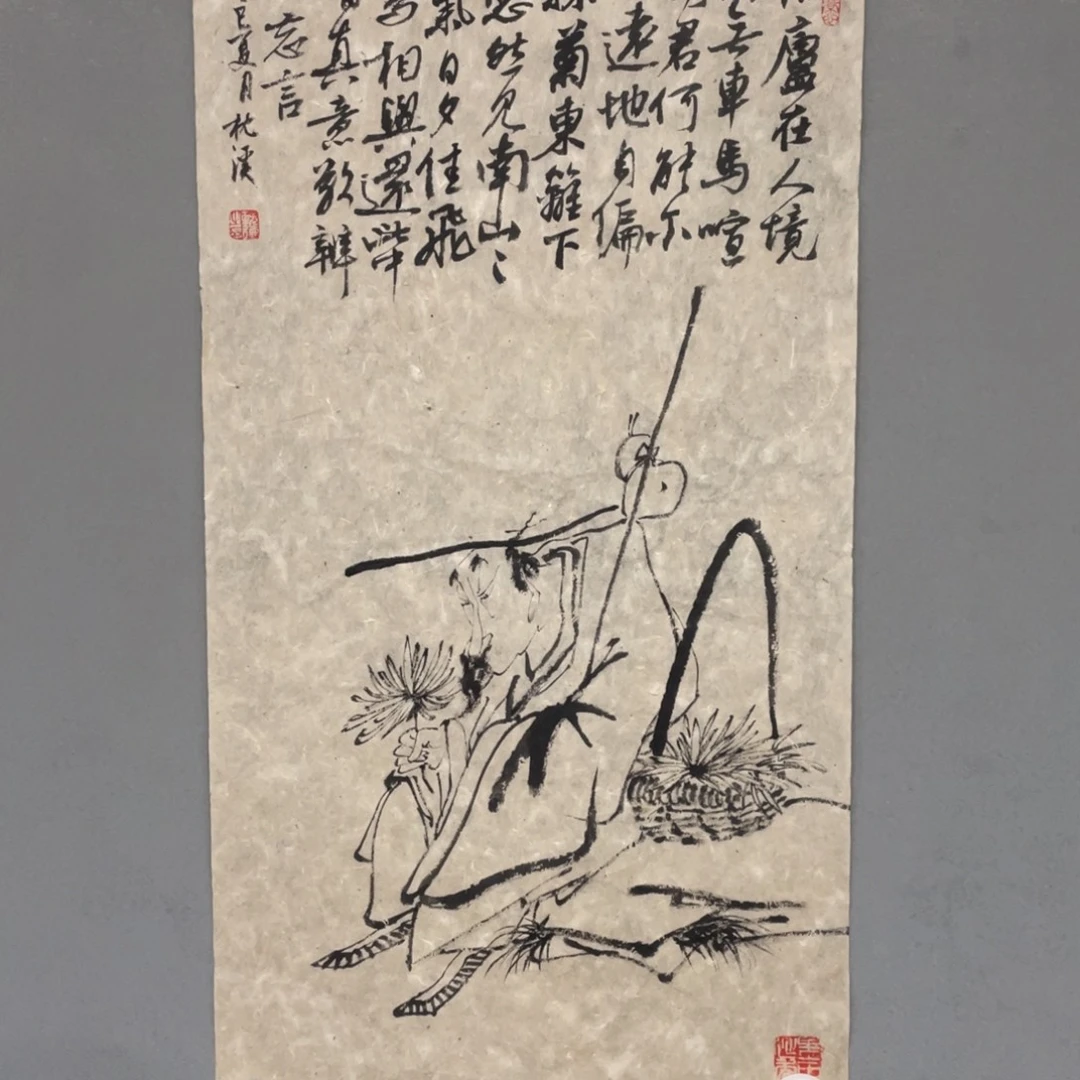 廬在人境
无車馬喧
君何能尔
遠地自偏
菊東籬下
悠然见南山〻
氣日夕佳飛
相與還此中
真意欲辨
忘言
巳夏月枕溪